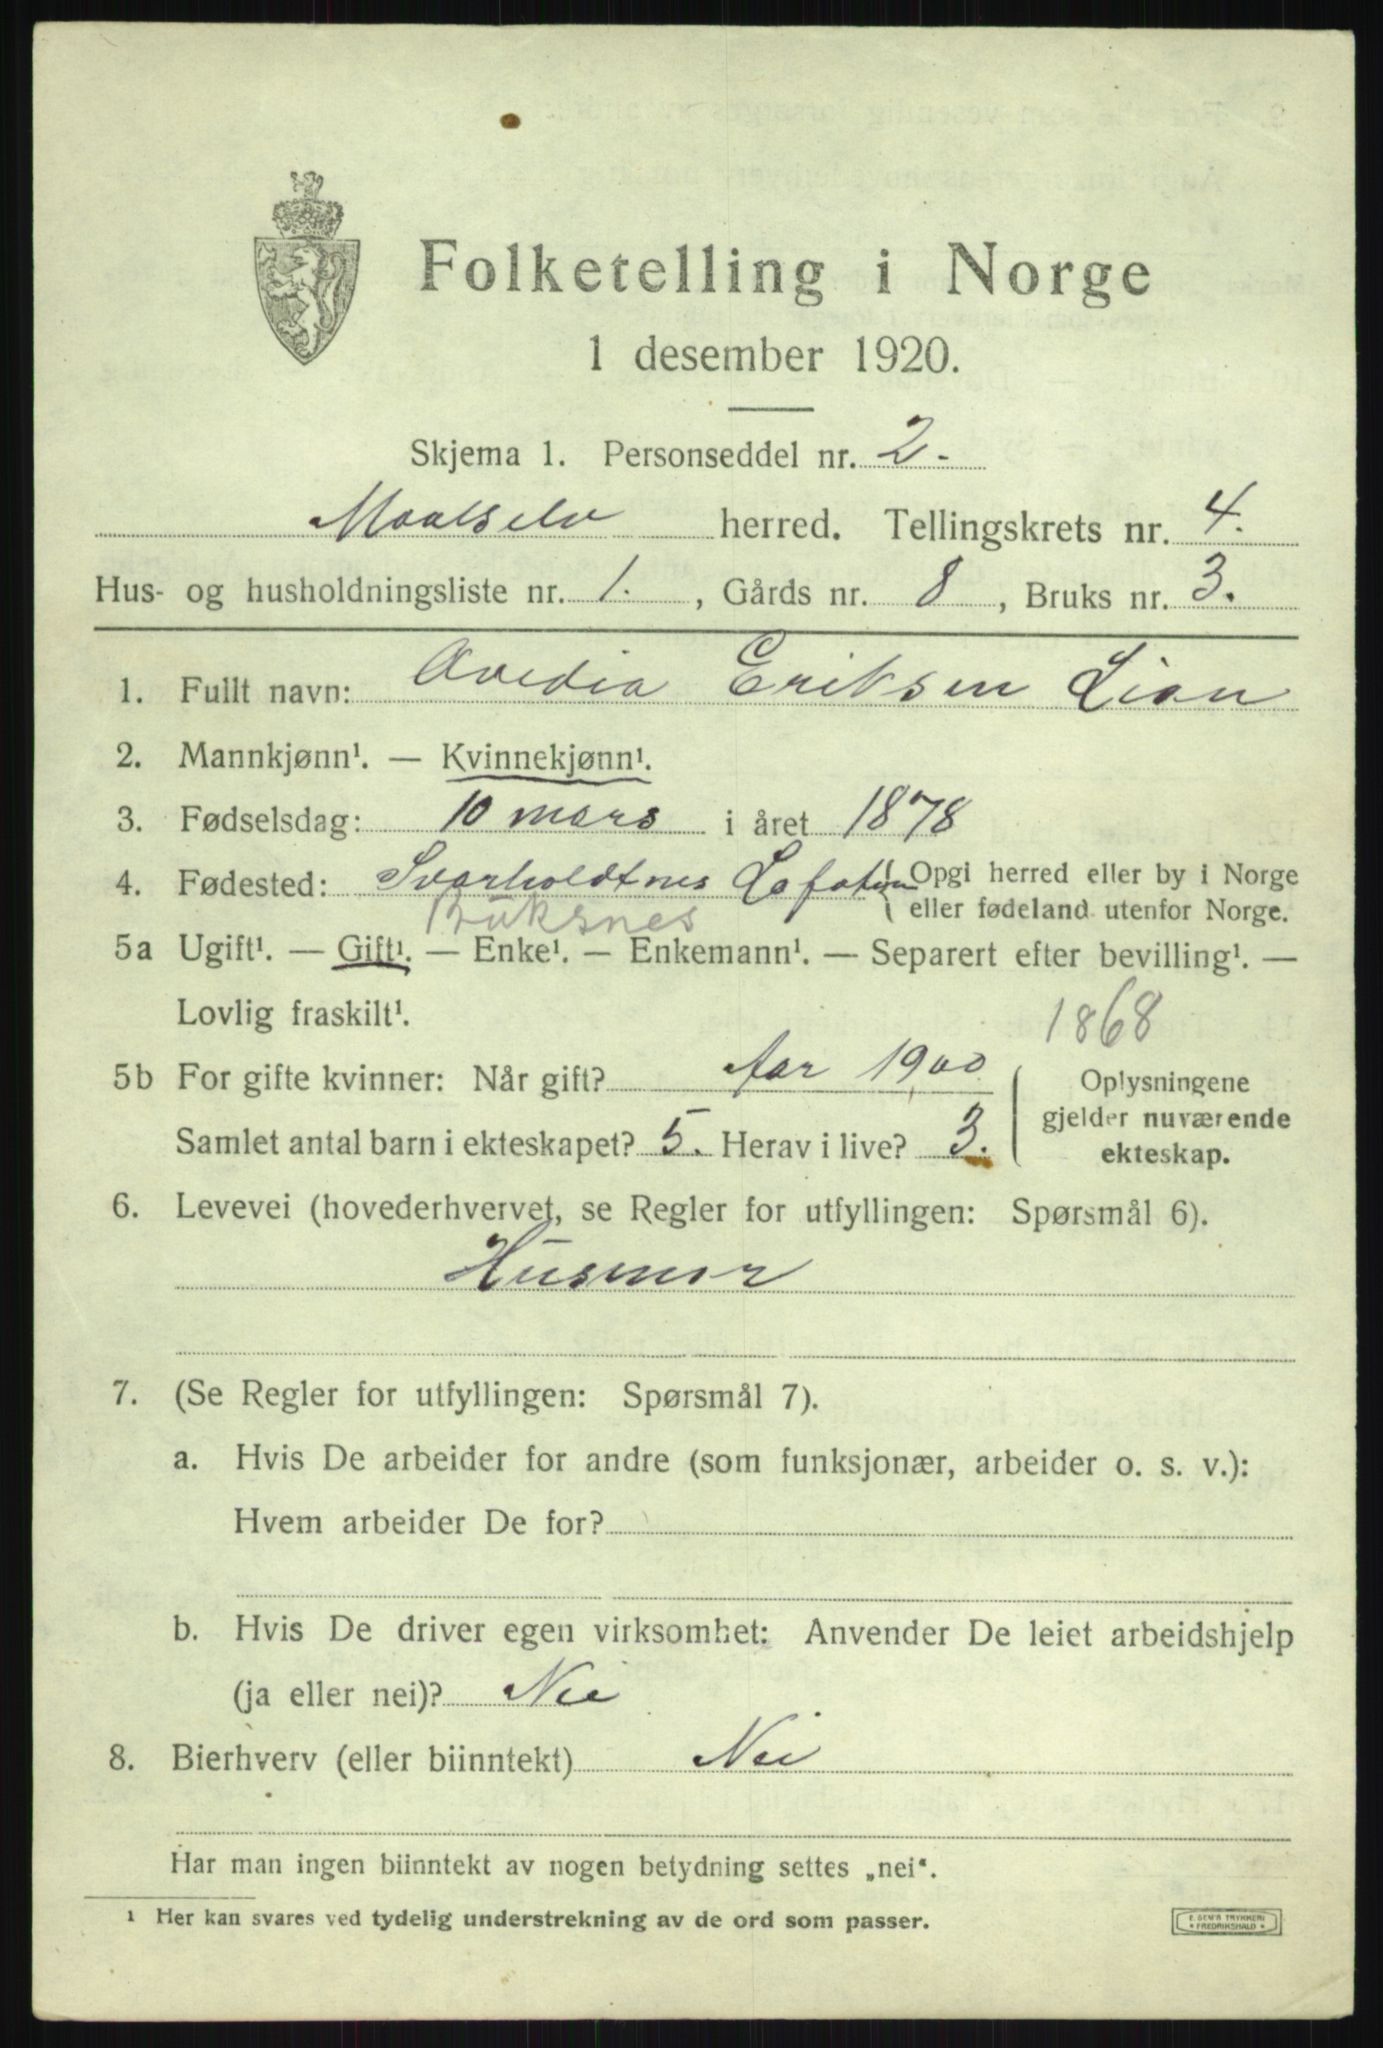 Folketelling i Norge
1 desember 1920.
Skjema 1. Personseddel nr. 2.
Maalselv herred. Tellingskrets nr. 4.
Hus- og husholdningsliste nr. 1. , Gårds nr. 8 , Bruks nr. 3.
1. Fullt navn: Ovedia Eriksen Lian
2. Mannkjønn¹. — Kvinnekjønn¹.
3. Fødselsdag: 10 mars i året 1878
4. Fødested: Svarholdtnes Lofoten Opgi herred eller by i Norge
eller fødeland utenfor Norge.
Buksnes
5a Ugift¹. — Gift¹. — Enke¹. — Enkemann¹. — Separert efter bevilling¹. —
Lovlig fraskilt¹.
1868
5b For gifte kvinner: Når gift? Aar 1900 Oplysningene
gjelder nuværende
Samlet antal barn i ekteskapet? 5. Herav i live? 3. ekteskap.
6. Levevei (hovederhvervet, se Regler for utfyllingen: Spørsmål 6).
Husmor
7. (Se Regler for utfyllingen: Spørsmål 7).
a. Hvis De arbeider for andre (som funksjonær, arbeider o. s. v.):
Hvem arbeider De for?
b. Hvis De driver egen virksomhet: Anvender De leiet arbeidshjelp
(ja eller nei)? Nei
8. Bierhverv (eller biinntekt) Nei
Har man ingen biinntekt av nogen betydning settes „nei“.
¹ Her kan svares ved tydelig understrekning av de ord som passer.
E. SEM'S TRYKKERI
* FREDRIKSHALD *